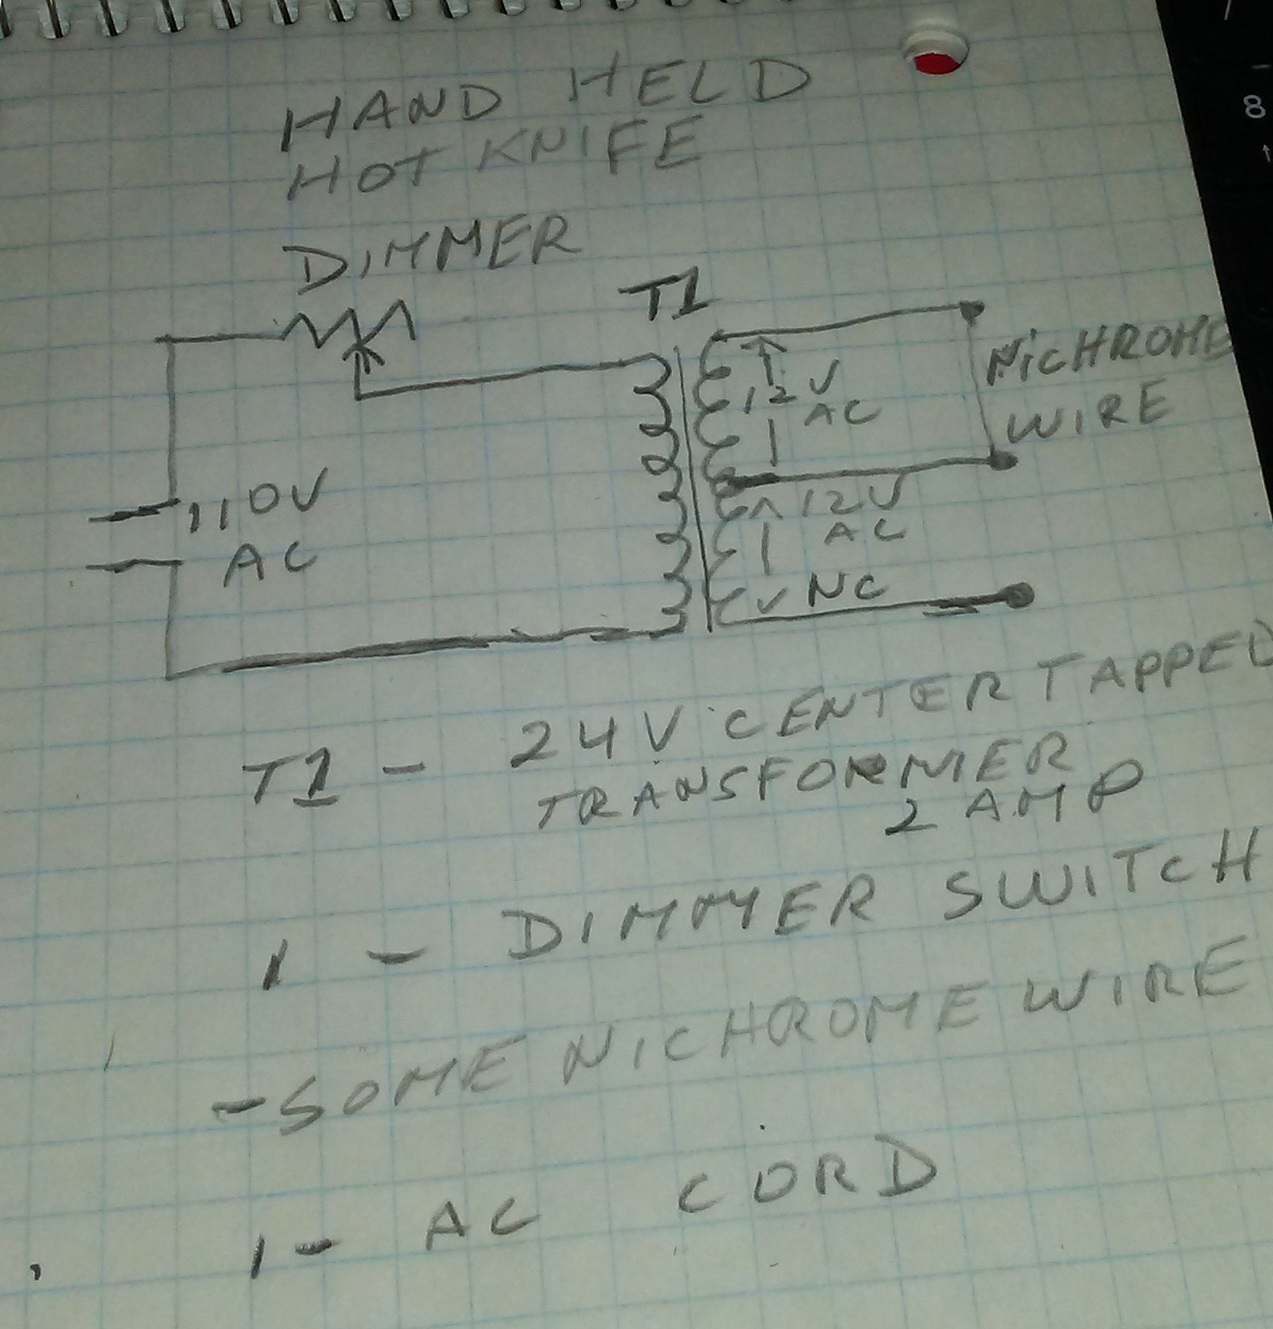 HAND HELD
HOT KNIFE
DIMMER
T1
NiCHROME
WIRE
12V
AC
110V
AC
12V
AC
NC
T1 - 24V CENTER TAPPED
TRANSFORMER
2 AMP
1 - DIMMER SWITCH
- SOME NICHROME WIRE
1 - AC CORD
8